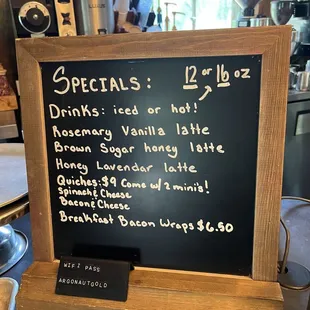 SPECIALS: 12 or 16 oz
Drinks: iced or hot!
Rosemary Vanilla latte
Brown Sugar honey latte
Honey Lavendar latte
Quiches: $9 Come w/ 2 mini's!
Spinach & Cheese
Bacon & Cheese
Breakfast Bacon Wraps $6.50
WIFI PASS
ARGONAUTGOLD